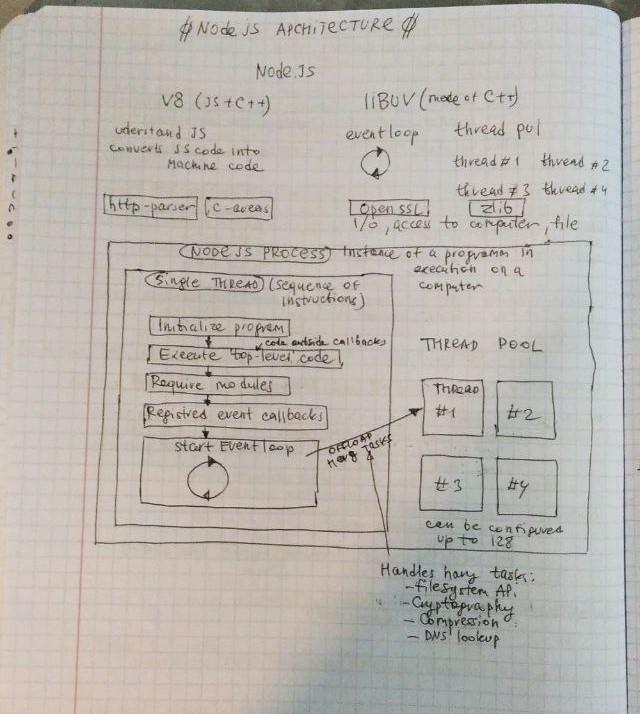 NodeJS ARCHITECTURE
Node.JS
V8 (JS+C++)
uderstand JS
converts JS code into
Machine code
http-parser
C-areas
LIBUV (made of C++)
eventloop
thread pul
thread #1 thread #2
thread #3 thread #4
OpenSSL
zlib
I/O, access to computer, file
NODE JS PROCESS) Instance of a programm in
execution on a
computer
Single THREAD) (sequence of
instructions)
Initialize program
code outside callbacks
Execute "top-level" code
Require modules
Registred event callbacks
start Event loop
OFFLOAD
Havy TASKS
THREAD POOL
THREAD
#1
#2
#3
#4
can be configured
up to 128
Handles havy tasks:
- filesystem APi
- Cryptography
- Compression
- DNS lookup